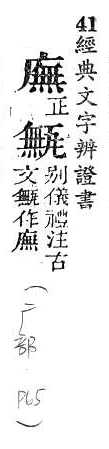 41 經典文字辨證書
廡正甒别儀禮注古
文甒作廡
(广部 P65)